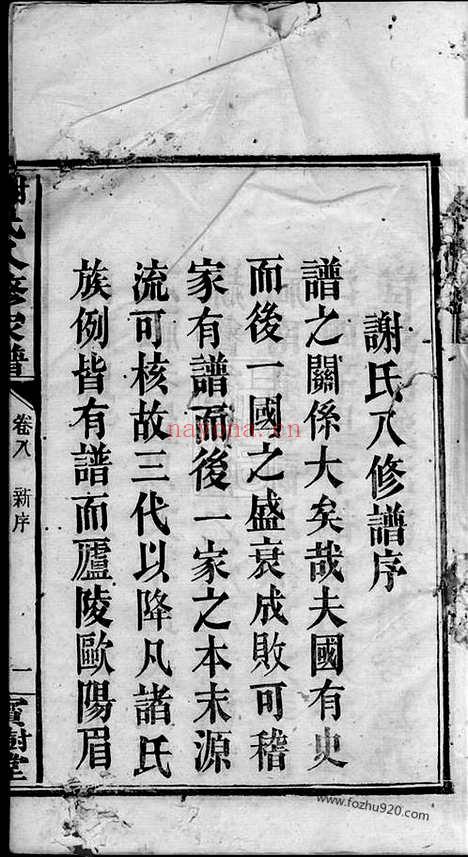 謝氏八修譜序
譜之關係大矣哉夫國有史
而後一國之盛衰成敗可稽
家有譜而後一家之本末源
流可核故三代以降凡諸氏
族例皆有譜而廬陵歐陽眉
謝氏八修家譜
卷八
新序
一
寶樹堂
nayona.cn
www.fozhu920.com